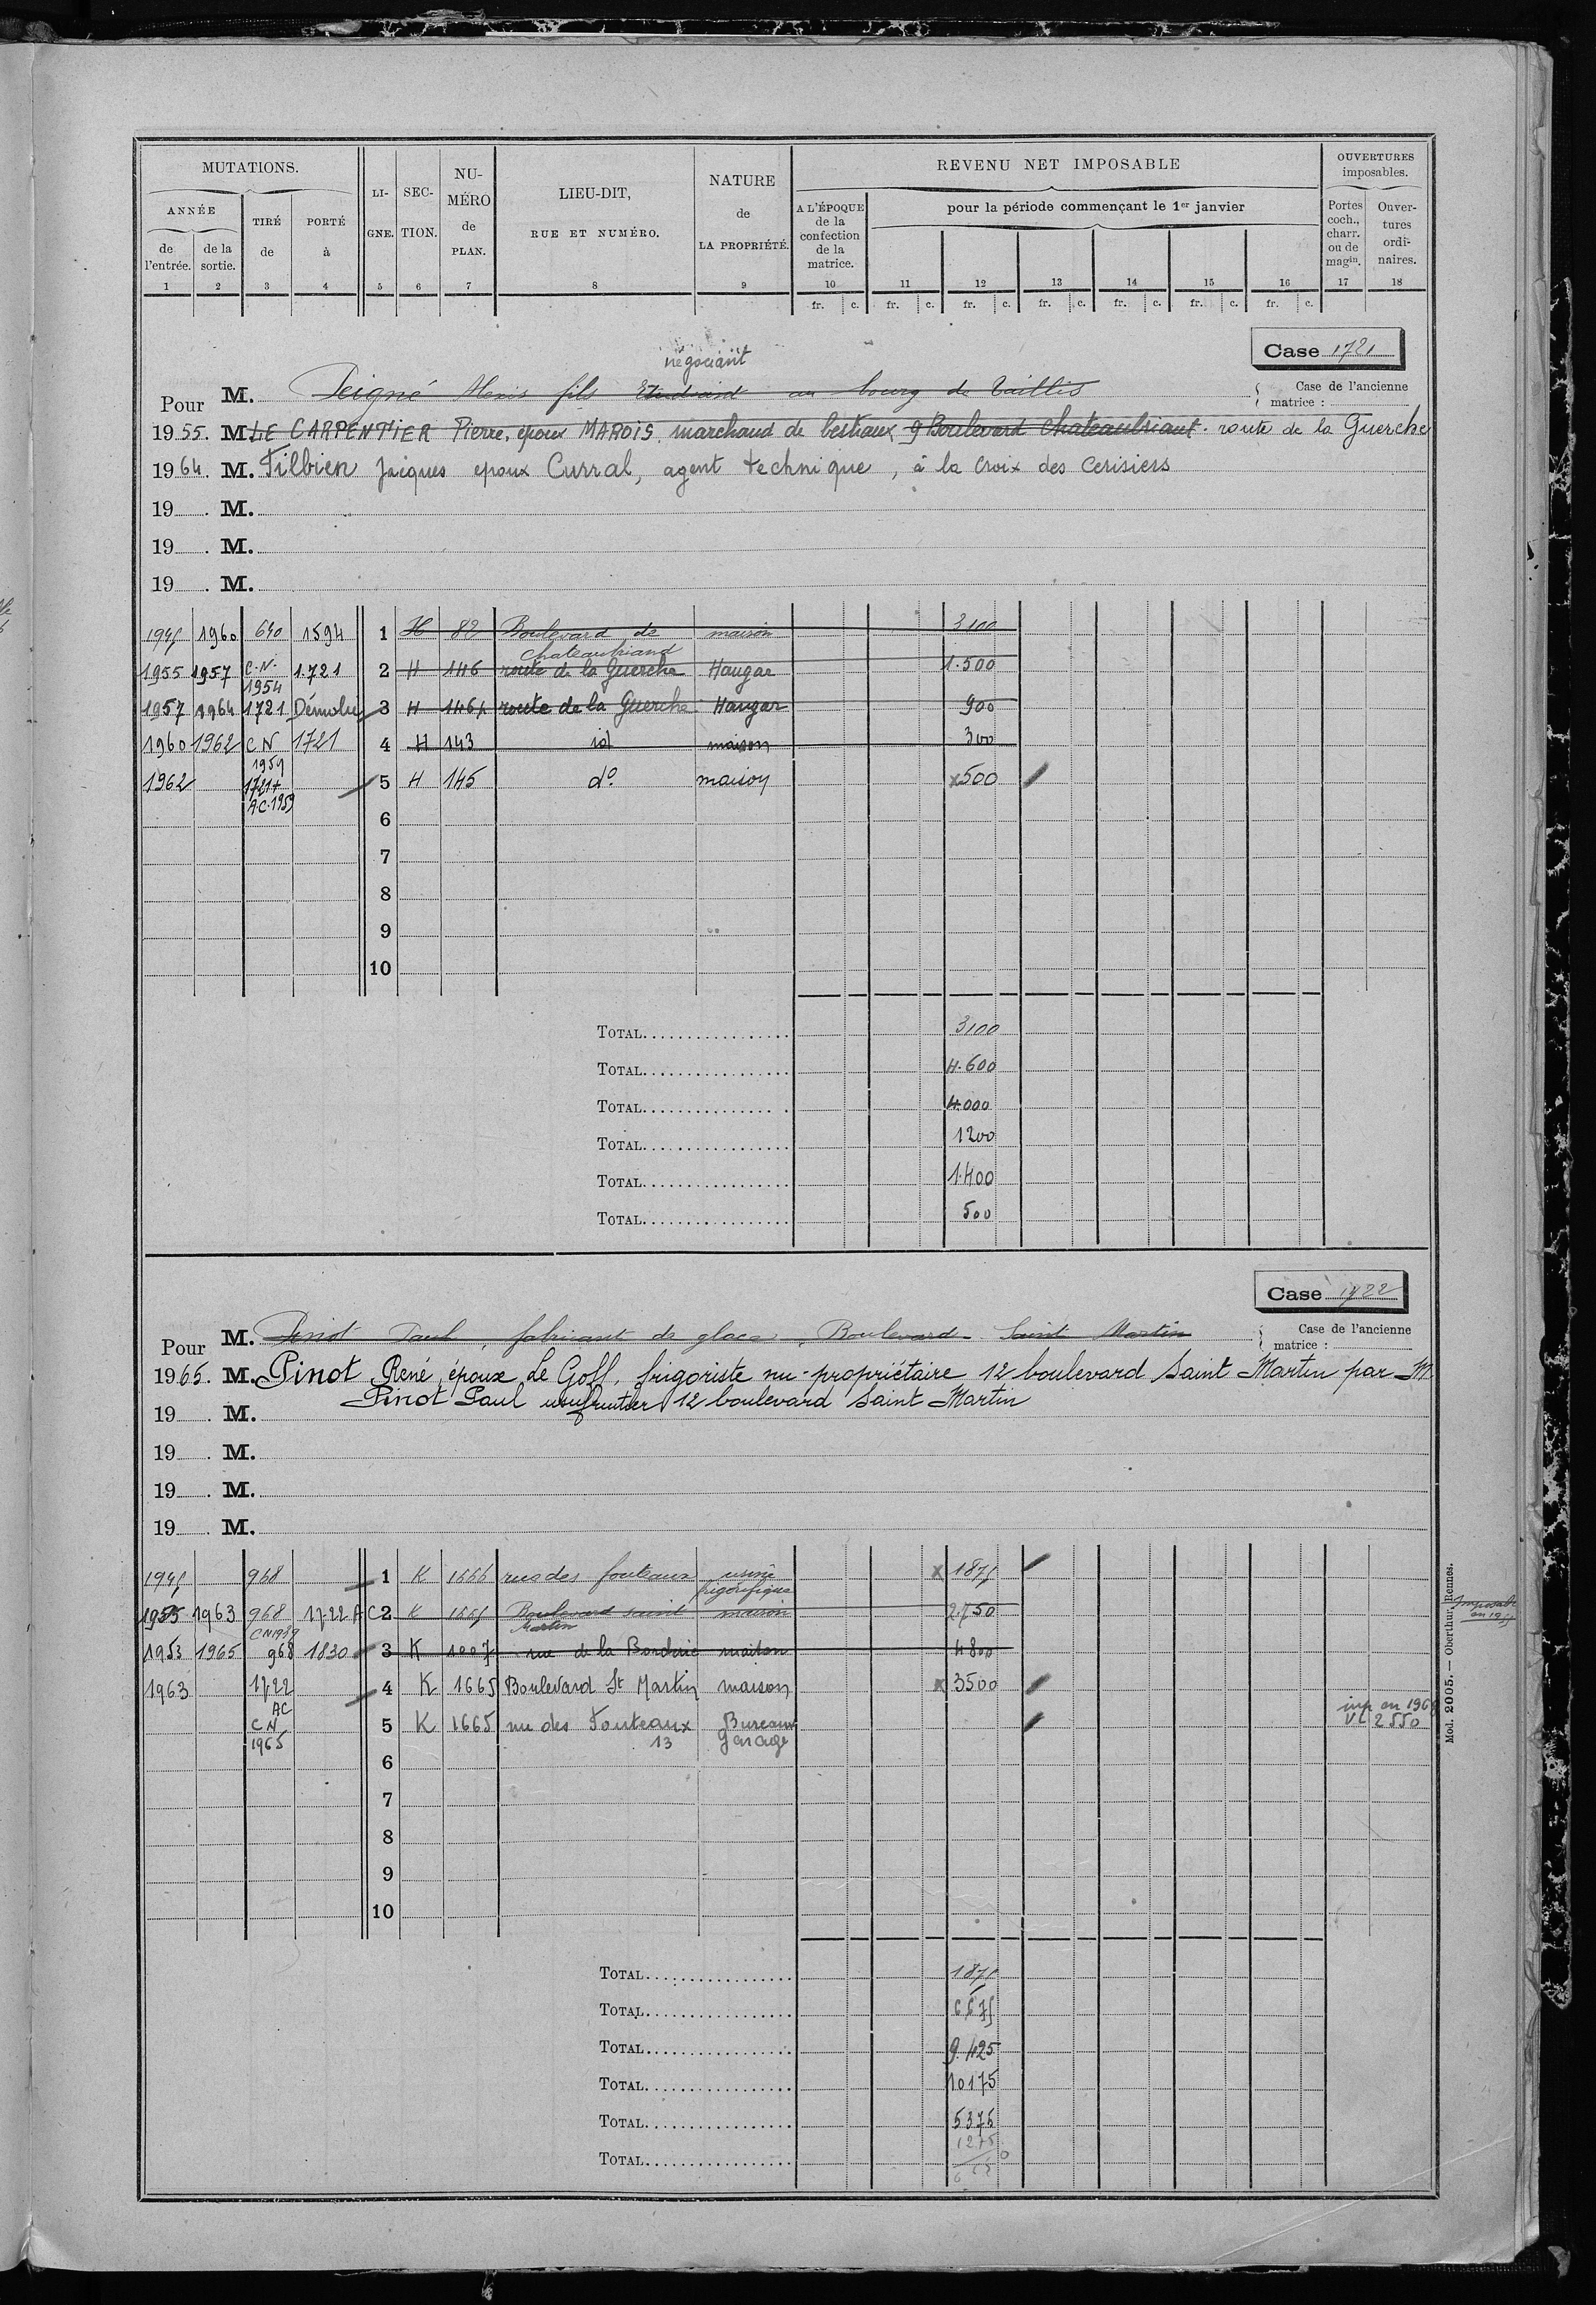 MUTATIONS.
ANNÉE
de l'entrée. de la sortie. TIRÉ de PORTÉ à LIGNE. SECTION. NUMÉRO de PLAN. LIEU-DIT, RUE ET NUMÉRO. NATURE de LA PROPRIÉTÉ.
REVENU NET IMPOSABLE
A L'ÉPOQUE de la confection de la matrice. pour la période commençant le 1er janvier
OUVERTURES imposables.
Portes coch., charr. ou de magin. Ouvertures ordinaires.
1 2 3 4 5 6 7 8 9 10 11 12 13 14 15 16 17 18
fr. c. fr. c. fr. c. fr. c. fr. c. fr. c. fr. c.
Case 1721
négociant
Pour M. Peigné Alexis fils Etudiant au bourg de Taillis
Case de l'ancienne matrice :
1955. M. LE CARPENTIER Pierre, époux MAROIS, marchand de bestiaux, 9 Boulevard Chateaubriant. route de la Guerche
1964. M. Filbien Jacques epoux Curral, agent technique, à la Croix des Cerisiers
19 . M.
19 . M.
19 . M.
1945 1960 640 1594 1 H 82 Boulevard de Chateaubriand maison 3100
1955 1957 C.N. 1954 1.721 2 H 146 route de la Guerche Hangar 1.500
1957 1964 1721 Démoli 3 H 146p route de la Guerche Hangar 900
1960 1962 CN 1959 1721 4 H 143 id maison 300
1962 1721+ A.C.1959 5 H 145 do maison x500
6
7
8
9
10
TOTAL 3100
TOTAL 4.600
TOTAL 4.000
TOTAL 1200
TOTAL 1.400
TOTAL 500
Case 1722
Pour M. Pinot Paul, fabricant de glace, Boulevard Saint Martin
Case de l'ancienne matrice :
1965. M. Pinot René, époux Le Goff, frigoriste nu-propriétaire 12 boulevard Saint Martin par M
19 . M. Pinot Paul usufruitier 12 boulevard Saint Martin
19 . M.
19 . M.
19 . M.
1945 968 1 K 1666 rue des fouteaux usine frigorifique x 1875
1955 1963 968 1722 AC 2 K 1665 Boulevard saint Martin maison 2.750
1953 1965 CN 968 1830 3 K 1007 rue de la Borderie maison 4800
1963 1722 AC 4 K 1665 Boulevard St Martin maison x 3500
CN 1965 5 K 1665 rue des Fouteaux 13 Bureaux Garage imp en 1968 VL 2550
6
7
8
9
10
TOTAL 1875
TOTAL 6675
TOTAL 9.425
TOTAL 10175
TOTAL 5375
1275
TOTAL
Mod. 2005. — Oberthur, Rennes.